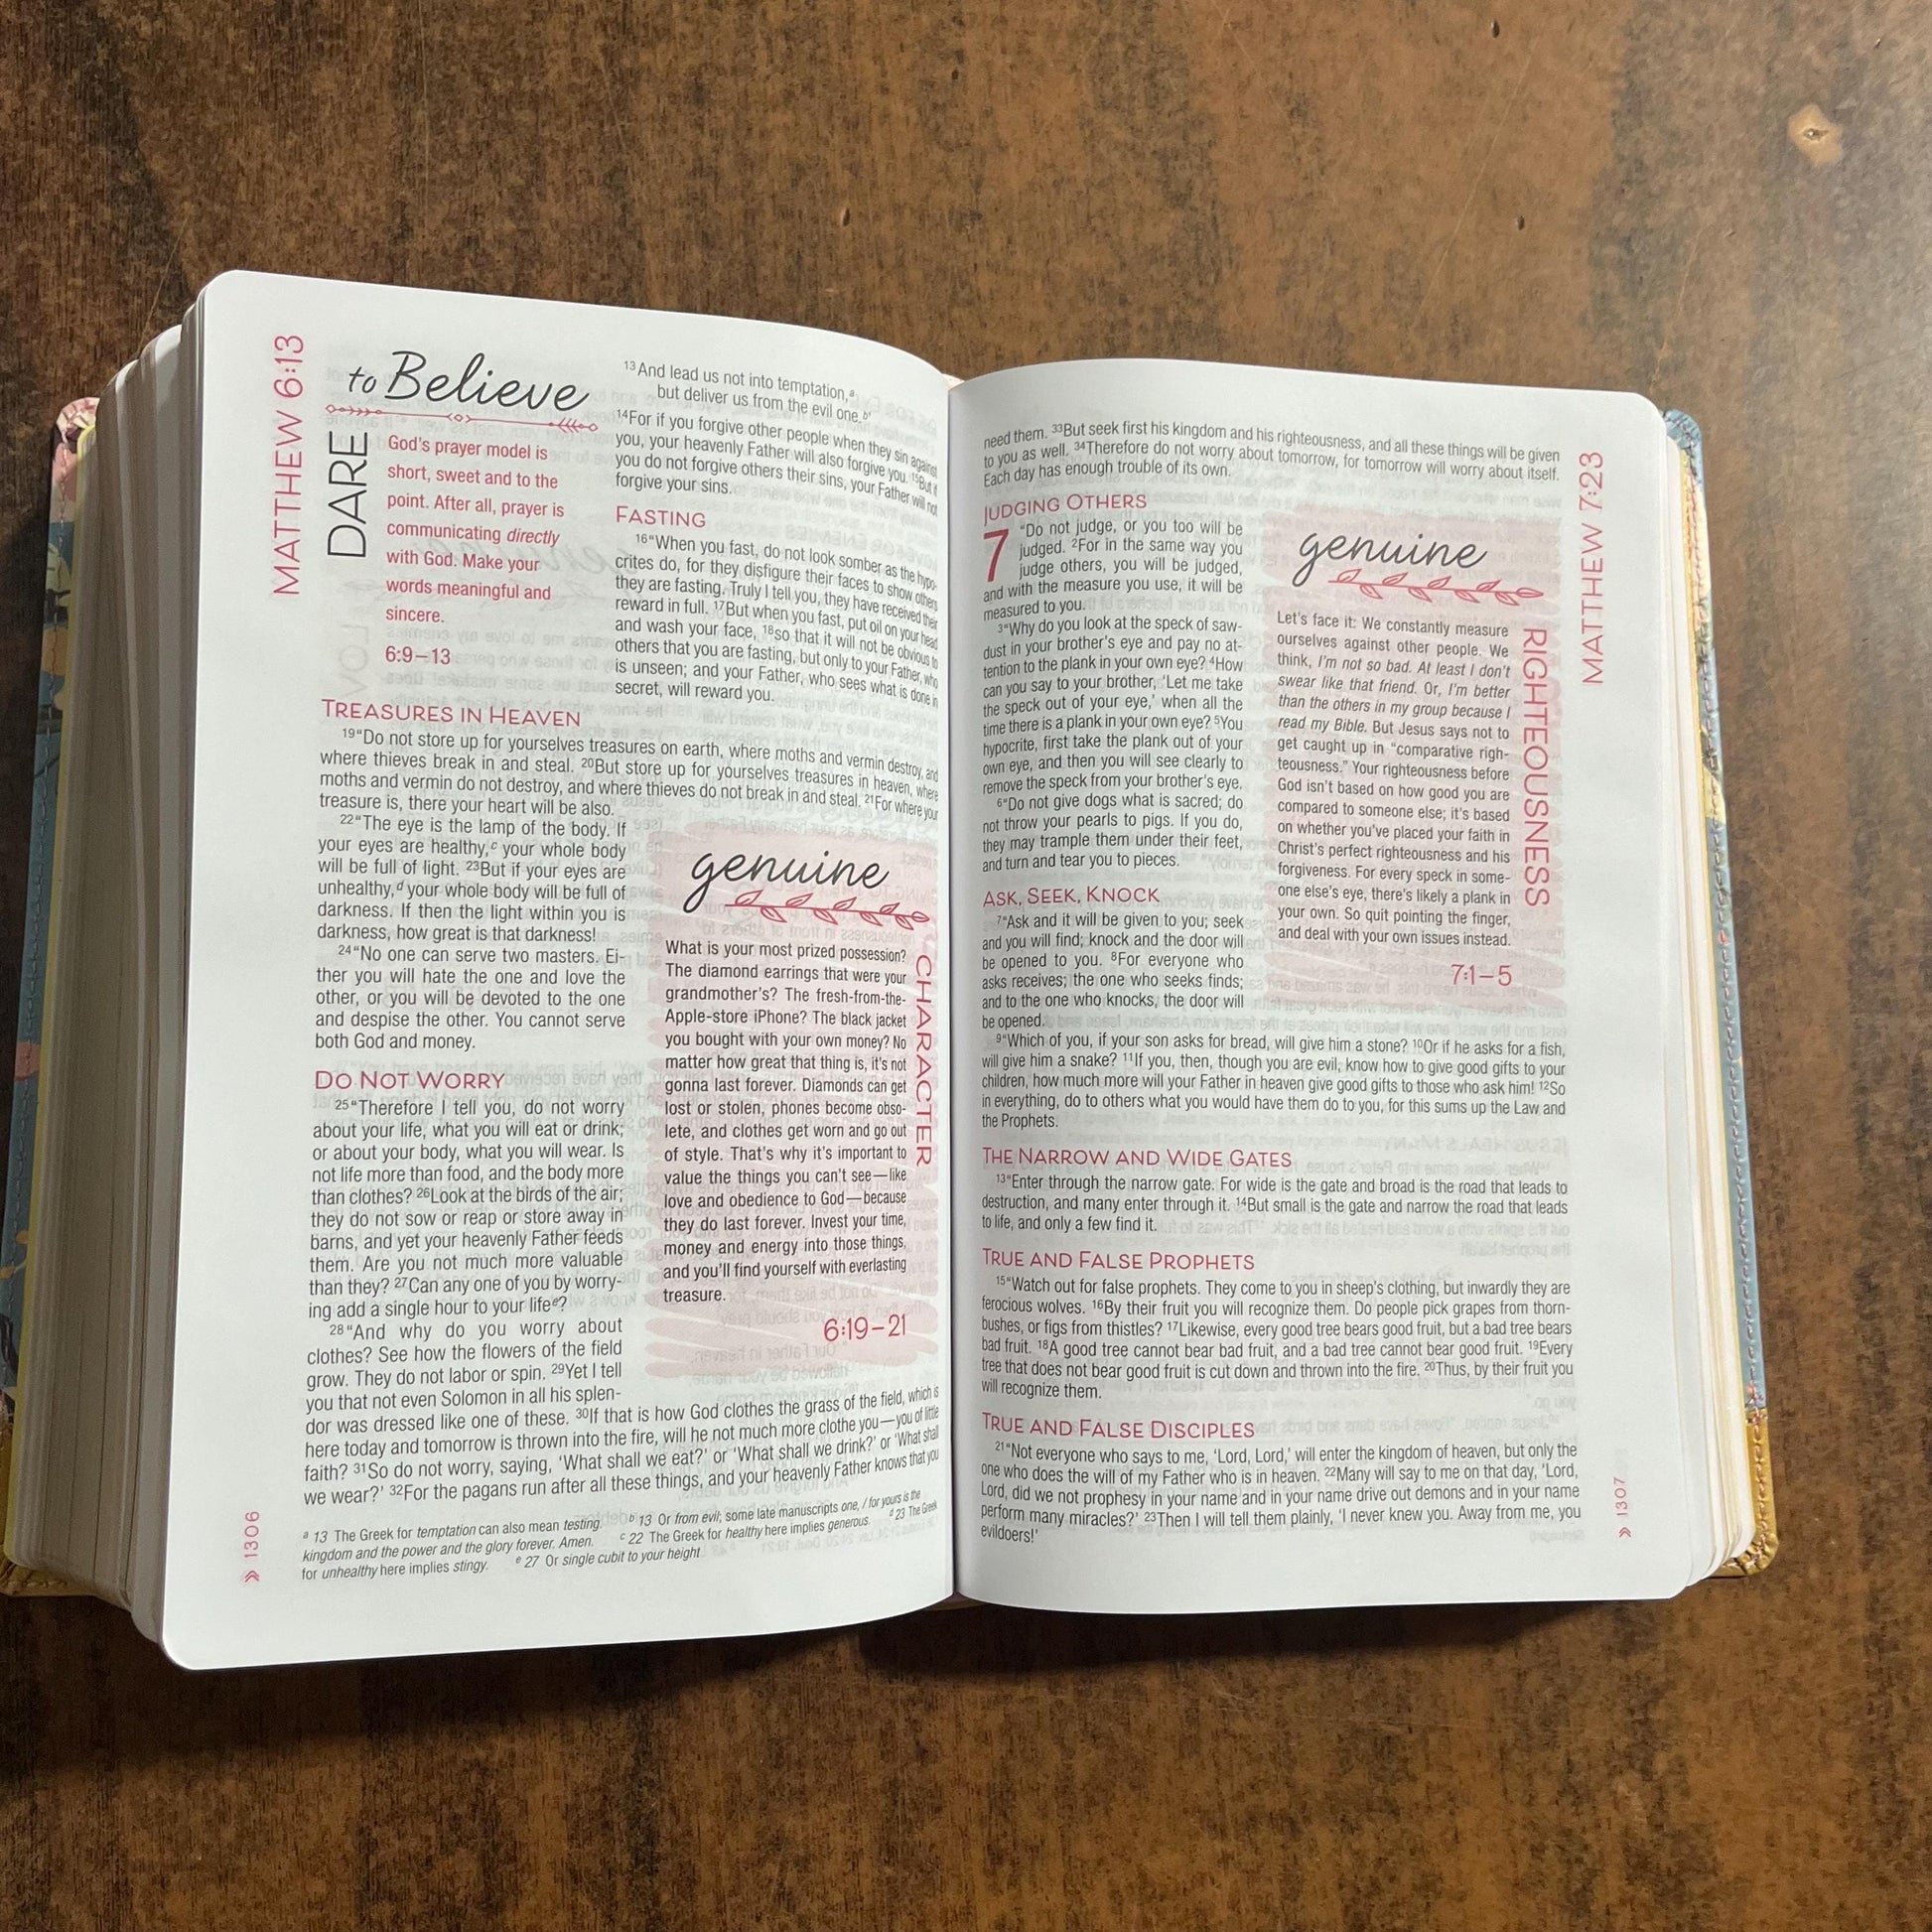 MATTHEW 6:13
DARE
to Believe
God's prayer model is
short, sweet and to the
point. After all, prayer is
communicating directly
with God. Make your
words meaningful and
sincere.
6:9–13
13And lead us not into temptation,a
but deliver us from the evil one.b'
14For if you forgive other people when they sin against
you, your heavenly Father will also forgive you. 15But if
you do not forgive others their sins, your Father will not
forgive your sins.
FASTING
16"When you fast, do not look somber as the hypo-
crites do, for they disfigure their faces to show others
they are fasting. Truly I tell you, they have received their
reward in full. 17But when you fast, put oil on your head
and wash your face, 18so that it will not be obvious to
others that you are fasting, but only to your Father, who
is unseen; and your Father, who sees what is done in
secret, will reward you.
TREASURES IN HEAVEN
19"Do not store up for yourselves treasures on earth, where moths and vermin destroy, and
where thieves break in and steal. 20But store up for yourselves treasures in heaven, where
moths and vermin do not destroy, and where thieves do not break in and steal. 21For where your
treasure is, there your heart will be also.
22"The eye is the lamp of the body. If
your eyes are healthy,c your whole body
will be full of light. 23But if your eyes are
unhealthy,d your whole body will be full of
darkness. If then the light within you is
darkness, how great is that darkness!
24"No one can serve two masters. Ei-
ther you will hate the one and love the
other, or you will be devoted to the one
and despise the other. You cannot serve
both God and money.
DO NOT WORRY
25"Therefore I tell you, do not worry
about your life, what you will eat or drink;
or about your body, what you will wear. Is
not life more than food, and the body more
than clothes? 26Look at the birds of the air;
they do not sow or reap or store away in
barns, and yet your heavenly Father feeds
them. Are you not much more valuable
than they? 27Can any one of you by worry-
ing add a single hour to your lifee?
28"And why do you worry about
clothes? See how the flowers of the field
grow. They do not labor or spin. 29Yet I tell
you that not even Solomon in all his splen-
dor was dressed like one of these. 30If that is how God clothes the grass of the field, which is
here today and tomorrow is thrown into the fire, will he not much more clothe you—you of little
faith? 31So do not worry, saying, 'What shall we eat?' or 'What shall we drink?' or 'What shall
we wear?' 32For the pagans run after all these things, and your heavenly Father knows that you
genuine
CHARACTER
What is your most prized possession?
The diamond earrings that were your
grandmother's? The fresh-from-the-
Apple-store iPhone? The black jacket
you bought with your own money? No
matter how great that thing is, it's not
gonna last forever. Diamonds can get
lost or stolen, phones become obso-
lete, and clothes get worn and go out
of style. That's why it's important to
value the things you can't see—like
love and obedience to God—because
they do last forever. Invest your time,
money and energy into those things,
and you'll find yourself with everlasting
treasure.
6:19–21
a 13 The Greek for temptation can also mean testing. b 13 Or from evil; some late manuscripts one, / for yours is the
kingdom and the power and the glory forever. Amen. c 22 The Greek for healthy here implies generous. d 23 The Greek
for unhealthy here implies stingy. e 27 Or single cubit to your height
» 1306
MATTHEW 7:23
need them. 33But seek first his kingdom and his righteousness, and all these things will be given
to you as well. 34Therefore do not worry about tomorrow, for tomorrow will worry about itself.
Each day has enough trouble of its own.
JUDGING OTHERS
7 "Do not judge, or you too will be
judged. 2For in the same way you
judge others, you will be judged,
and with the measure you use, it will be
measured to you.
3"Why do you look at the speck of saw-
dust in your brother's eye and pay no at-
tention to the plank in your own eye? 4How
can you say to your brother, 'Let me take
the speck out of your eye,' when all the
time there is a plank in your own eye? 5You
hypocrite, first take the plank out of your
own eye, and then you will see clearly to
remove the speck from your brother's eye.
6"Do not give dogs what is sacred; do
not throw your pearls to pigs. If you do,
they may trample them under their feet,
and turn and tear you to pieces.
ASK, SEEK, KNOCK
7"Ask and it will be given to you; seek
and you will find; knock and the door will
be opened to you. 8For everyone who
asks receives; the one who seeks finds;
and to the one who knocks, the door will
be opened.
9"Which of you, if your son asks for bread, will give him a stone? 10Or if he asks for a fish,
will give him a snake? 11If you, then, though you are evil, know how to give good gifts to your
children, how much more will your Father in heaven give good gifts to those who ask him! 12So
in everything, do to others what you would have them do to you, for this sums up the Law and
the Prophets.
genuine
RIGHTEOUSNESS
Let's face it: We constantly measure
ourselves against other people. We
think, I'm not so bad. At least I don't
swear like that friend. Or, I'm better
than the others in my group because I
read my Bible. But Jesus says not to
get caught up in "comparative righ-
teousness." Your righteousness before
God isn't based on how good you are
compared to someone else; it's based
on whether you've placed your faith in
Christ's perfect righteousness and his
forgiveness. For every speck in some-
one else's eye, there's likely a plank in
your own. So quit pointing the finger,
and deal with your own issues instead.
7:1–5
THE NARROW AND WIDE GATES
13"Enter through the narrow gate. For wide is the gate and broad is the road that leads to
destruction, and many enter through it. 14But small is the gate and narrow the road that leads
to life, and only a few find it.
TRUE AND FALSE PROPHETS
15"Watch out for false prophets. They come to you in sheep's clothing, but inwardly they are
ferocious wolves. 16By their fruit you will recognize them. Do people pick grapes from thorn-
bushes, or figs from thistles? 17Likewise, every good tree bears good fruit, but a bad tree bears
bad fruit. 18A good tree cannot bear bad fruit, and a bad tree cannot bear good fruit. 19Every
tree that does not bear good fruit is cut down and thrown into the fire. 20Thus, by their fruit you
will recognize them.
TRUE AND FALSE DISCIPLES
21"Not everyone who says to me, 'Lord, Lord,' will enter the kingdom of heaven, but only the
one who does the will of my Father who is in heaven. 22Many will say to me on that day, 'Lord,
Lord, did we not prophesy in your name and in your name drive out demons and in your name
perform many miracles?' 23Then I will tell them plainly, 'I never knew you. Away from me, you
evildoers!'
» 1307